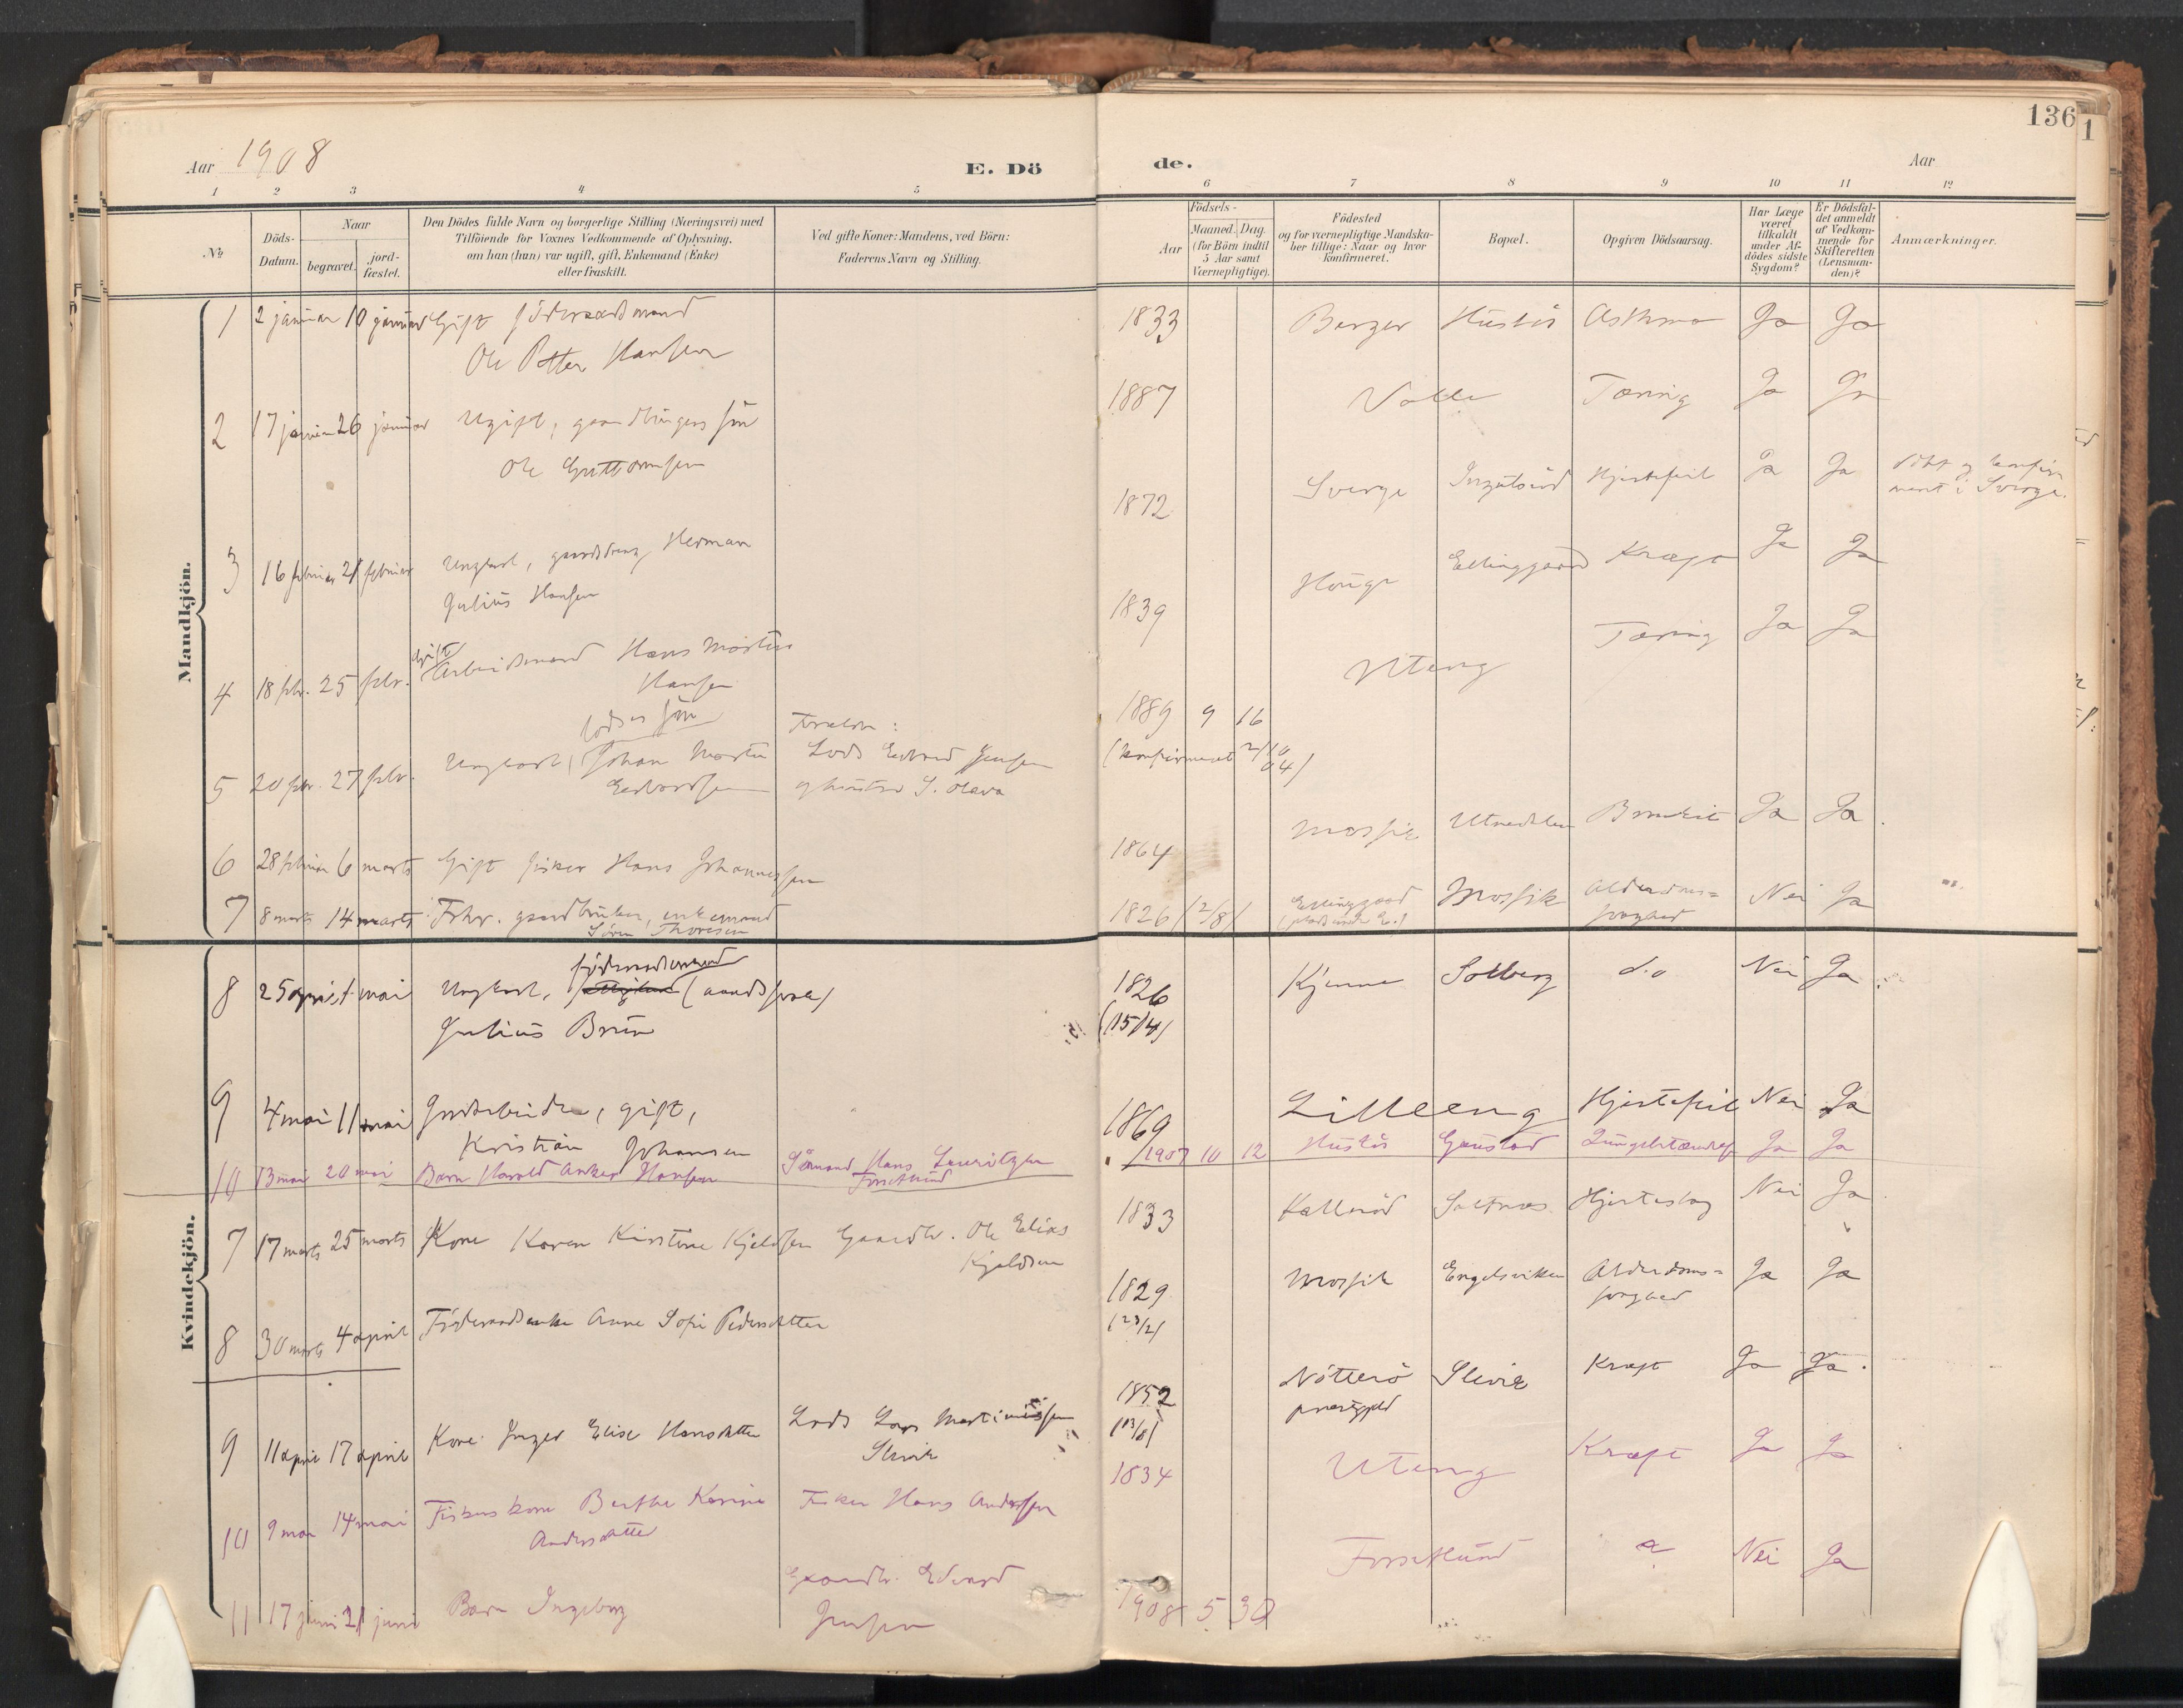 136
1
Aar 1908
E. Dö
de.
Aar
1 2 3 4 5 6 7 8 9 10 11 12
№
Döds-
Datum.
Naar
begravet.
jord-
fæstet.
Den Dödes fulde Navn og borgerlige Stilling (Næringsvei) med
Tilföiende for Voxnes Vedkommende af Oplysning,
om han (hun) var ugift, gift, Enkemand (Enke)
eller fraskilt.
Ved gifte Koner: Mandens, ved Börn:
Faderens Navn og Stilling.
Födsels-
Aar
Maaned. Dag.
(for Börn indtil
5 Aar samt
Værnepligtige).
Födested
og for værnepligtige Mandska-
ber tillige: Naar og hvor
konfirmeret.
Bopæl.
Opgiven Dödsaarsag.
Har Læge
været
tilkaldt
under Af-
dödes sidste
Sygdom?
Er Dödsfal-
det anmeldt
af Vedkom-
mende for
Skifteretten
(Lensman-
den)?
Anmærkninger.
Mandkjön.
1 2 januar 10 januar Gift föderaadsmand 1833 Berger Husløs Asthma Ja Ja
Ole Petter Hansen
2 17 januar 26 januar Ugift, gaardbrugers søn 1887 Valle Tæring Ja Ja
Ole Guttormsen
3 16 februar 21 februar Ungkarl, gaardsdreng Herman 1872 Sverge Hjertefeil Ja Ja døbt og konfir
Julius Hansen meret i Sverge.
4 18 febr. 25 febr. Gift Arbeidsmand Hans Martin 1839 Hauge Ellinggaard Kræft Ja Ja
Hansen
lodses søn Forældre:
5 20 febr. 27 febr. Ungkarl, Johan Martin Lods Edvard Jensen 1889 9 16 Uteng Tæring Ja Ja
Edvardsen og hustru S. Olava (konfirmeret 2/10 04)
6 28 februar 6 marts Gift fisker Hans Johannessen 1864 Mossik Utnedklen Ja Ja
7 8 marts 14 marts Fhv. gaardbruker, enkemand 1826 (2/8) Ellinggaard Mossik Alderdoms= Nei Ja
Søren Thoresen (plads under E.) svaghed
8 25 april 1. mai Ungkarl, föderaadsmand (aandssvak) 1826 Kjenne Solberg d.o Nei Ja
Julius Brun (15/4)
9 4 mai 11 mai Gaardbruker, gift, 1869 Lilleeng Hjertefeil Nei Ja
Kristian Johansen
10 13 mai 20 mai Barn Harald Anker Hansen Sømand Hans Lauritzen 1907 10 12 Husløs Gaustad Lungebetændelse Ja Ja
Forsetlund
Kvindekjön.
7 17 marts 25 marts Kone Karen Kirstine Kjeldsen Gaardbr. Ole Elias 1833 Kallerød Saltnæs Hjerteslag Nei Ja
Kjeldsen
8 30 marts 4 april Föderaadsenke Anne Sofie Pedersdatter 1829 Mossik Engelsviken Alderdoms= Ja Ja
(23/2) svaghed
9 11 april 17 april Kone Inger Elise Hansdatter Lods Lars Martiniussen 1852 Nötterö Slevik Kræft Ja Ja.
Slevik (13/8) præstegjeld
10 9 mai 14 mai Fiskers kone Berthe Karine Fisker Hans Anderssen 1834 Uteng Kræft Ja Ja
Andersdatter
11 17 juni 21 juni Barn Ingeborg Gaardbr. Edvard 1908 5 30 Forsetlund Nei Ja
Jensen